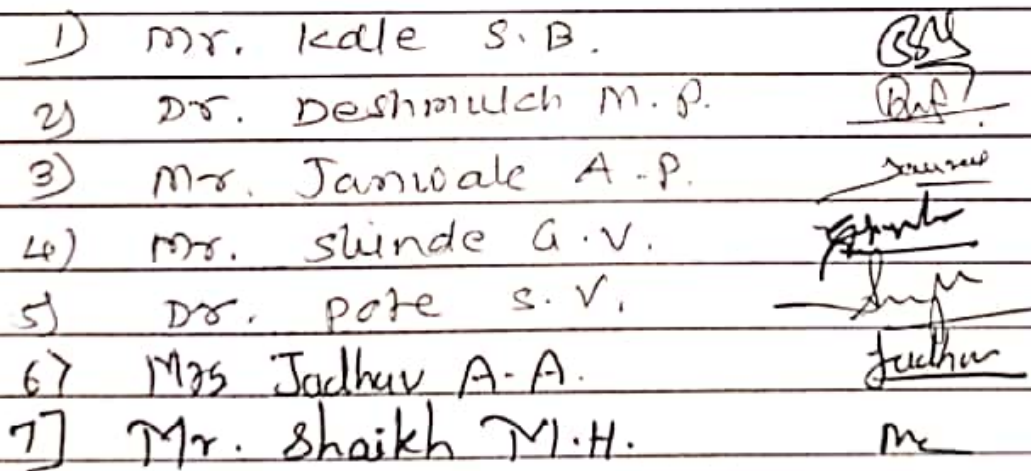 1) Mr. Kale S.B.
2) Dr. Deshmukh M.P.
3) Mr. A.P.
4) Mr. Shinde G.V.
5) Dr. Pote S.V.
6) Mrs Jadhav A.A. Jadhav
7] Mr. Shaikh M.H.